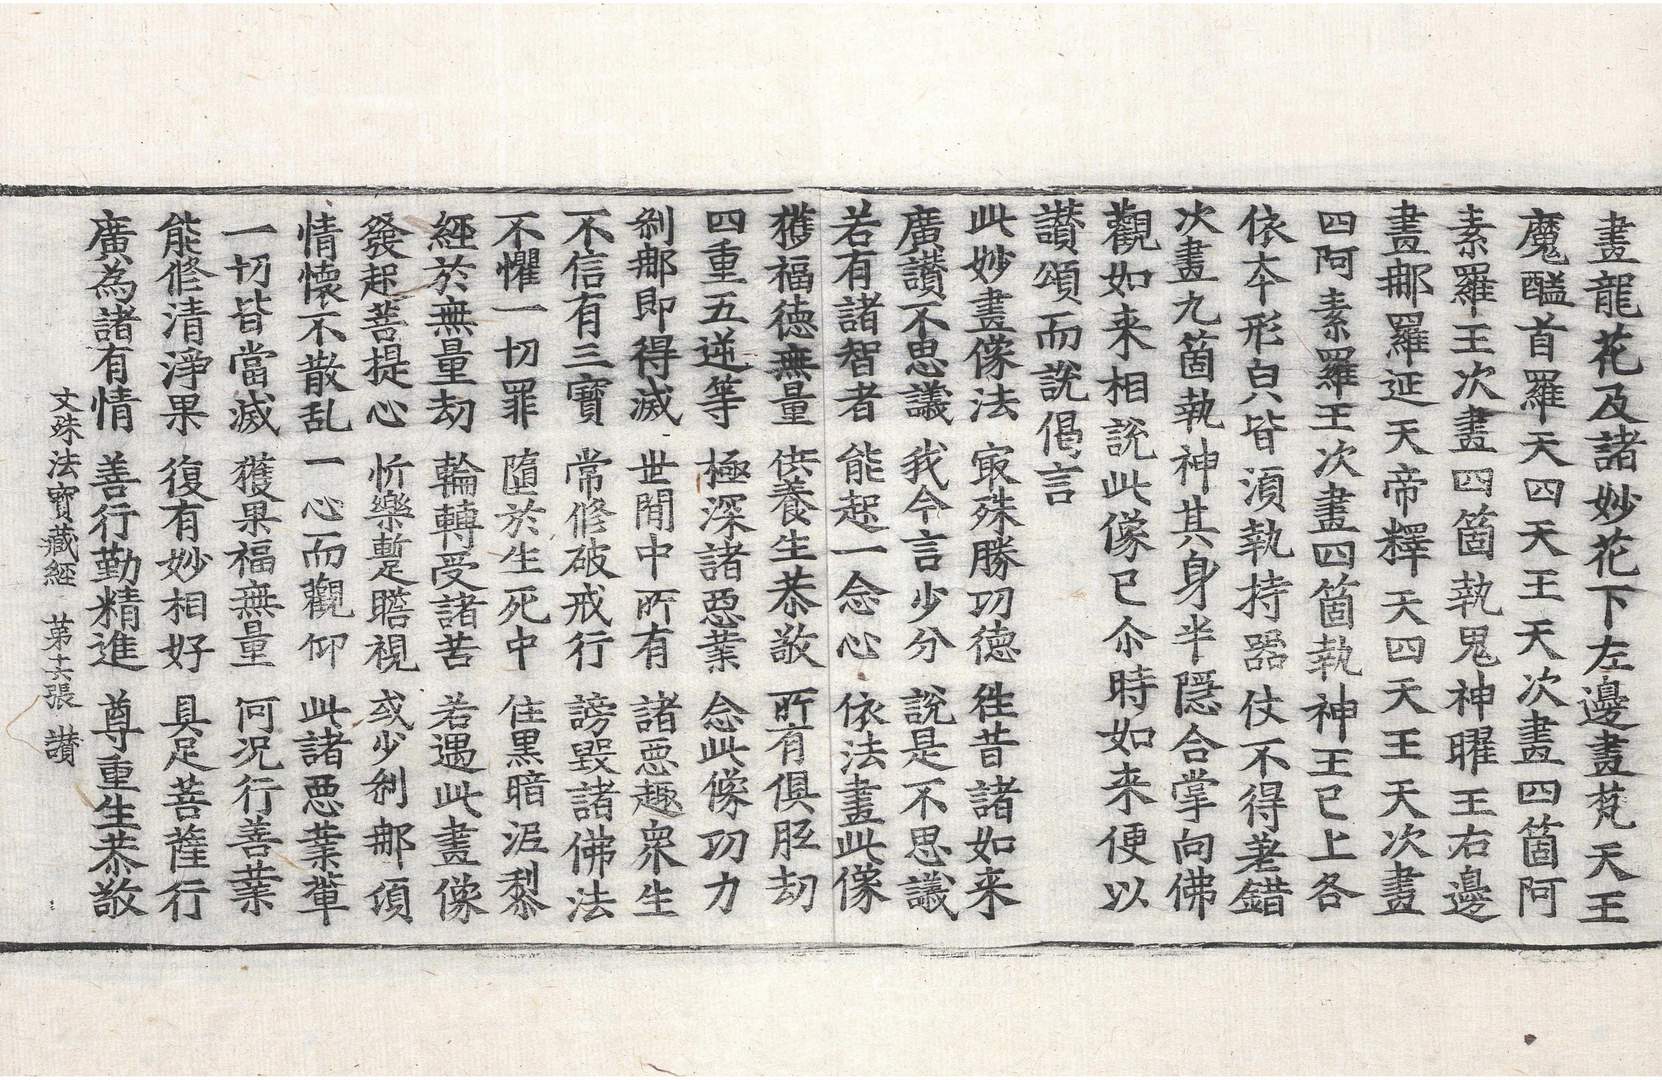 畫龍花及諸妙花下左邊畫梵天王
魔醯首羅天四天王天次畫四箇阿
素羅王次畫四箇執鬼神曜王右邊
畫那羅延天帝釋天四天王天次畫
四阿素羅王次畫四箇執神王已上各
依本形皃皆湏執持器仗不得差錯
次畫九箇執神其身半隱合掌向佛
觀如来相說此像已尒時如来便以
讃頌而說偈言
此妙畫像法 㝡殊勝功德 徃昔諸如来
廣讃不思議 我今言少分 說是不思議
若有諸智者 能起一念心 依法畫此像
獲福德無量 供養生恭敬 所有俱胝劫
四重五逆等 極深諸惡業 念此像功力
刹那即得滅 世間中所有 諸惡趣衆生
不信有三寶 常修破戒行 謗毀諸佛法
不懼一切罪 墮於生死中 住黒暗泥黎
經於無量劫 輪轉受諸苦 若遇此畫像
發起菩提心 忻樂暫瞻視 或少刹那湏
情懐不散乱 一心而觀仰 此諸惡業軰
一切皆當滅 獲果福無量 何况行善業
能修清淨果 復有妙相好 具足菩薩行
廣為諸有情 善行勤精進 尊重生恭敬
文殊法寶藏經 第十六張 讃